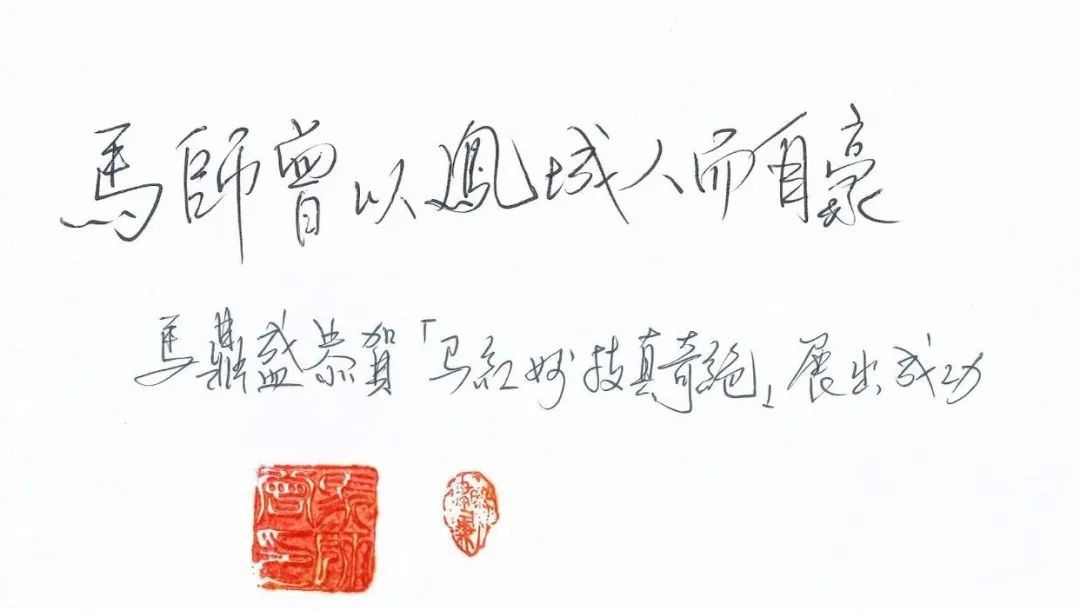 馬師曾以鳳城人而自豪
馬鼎盛恭賀「马紅妙技真奇絕」展出成功
馬師曾印